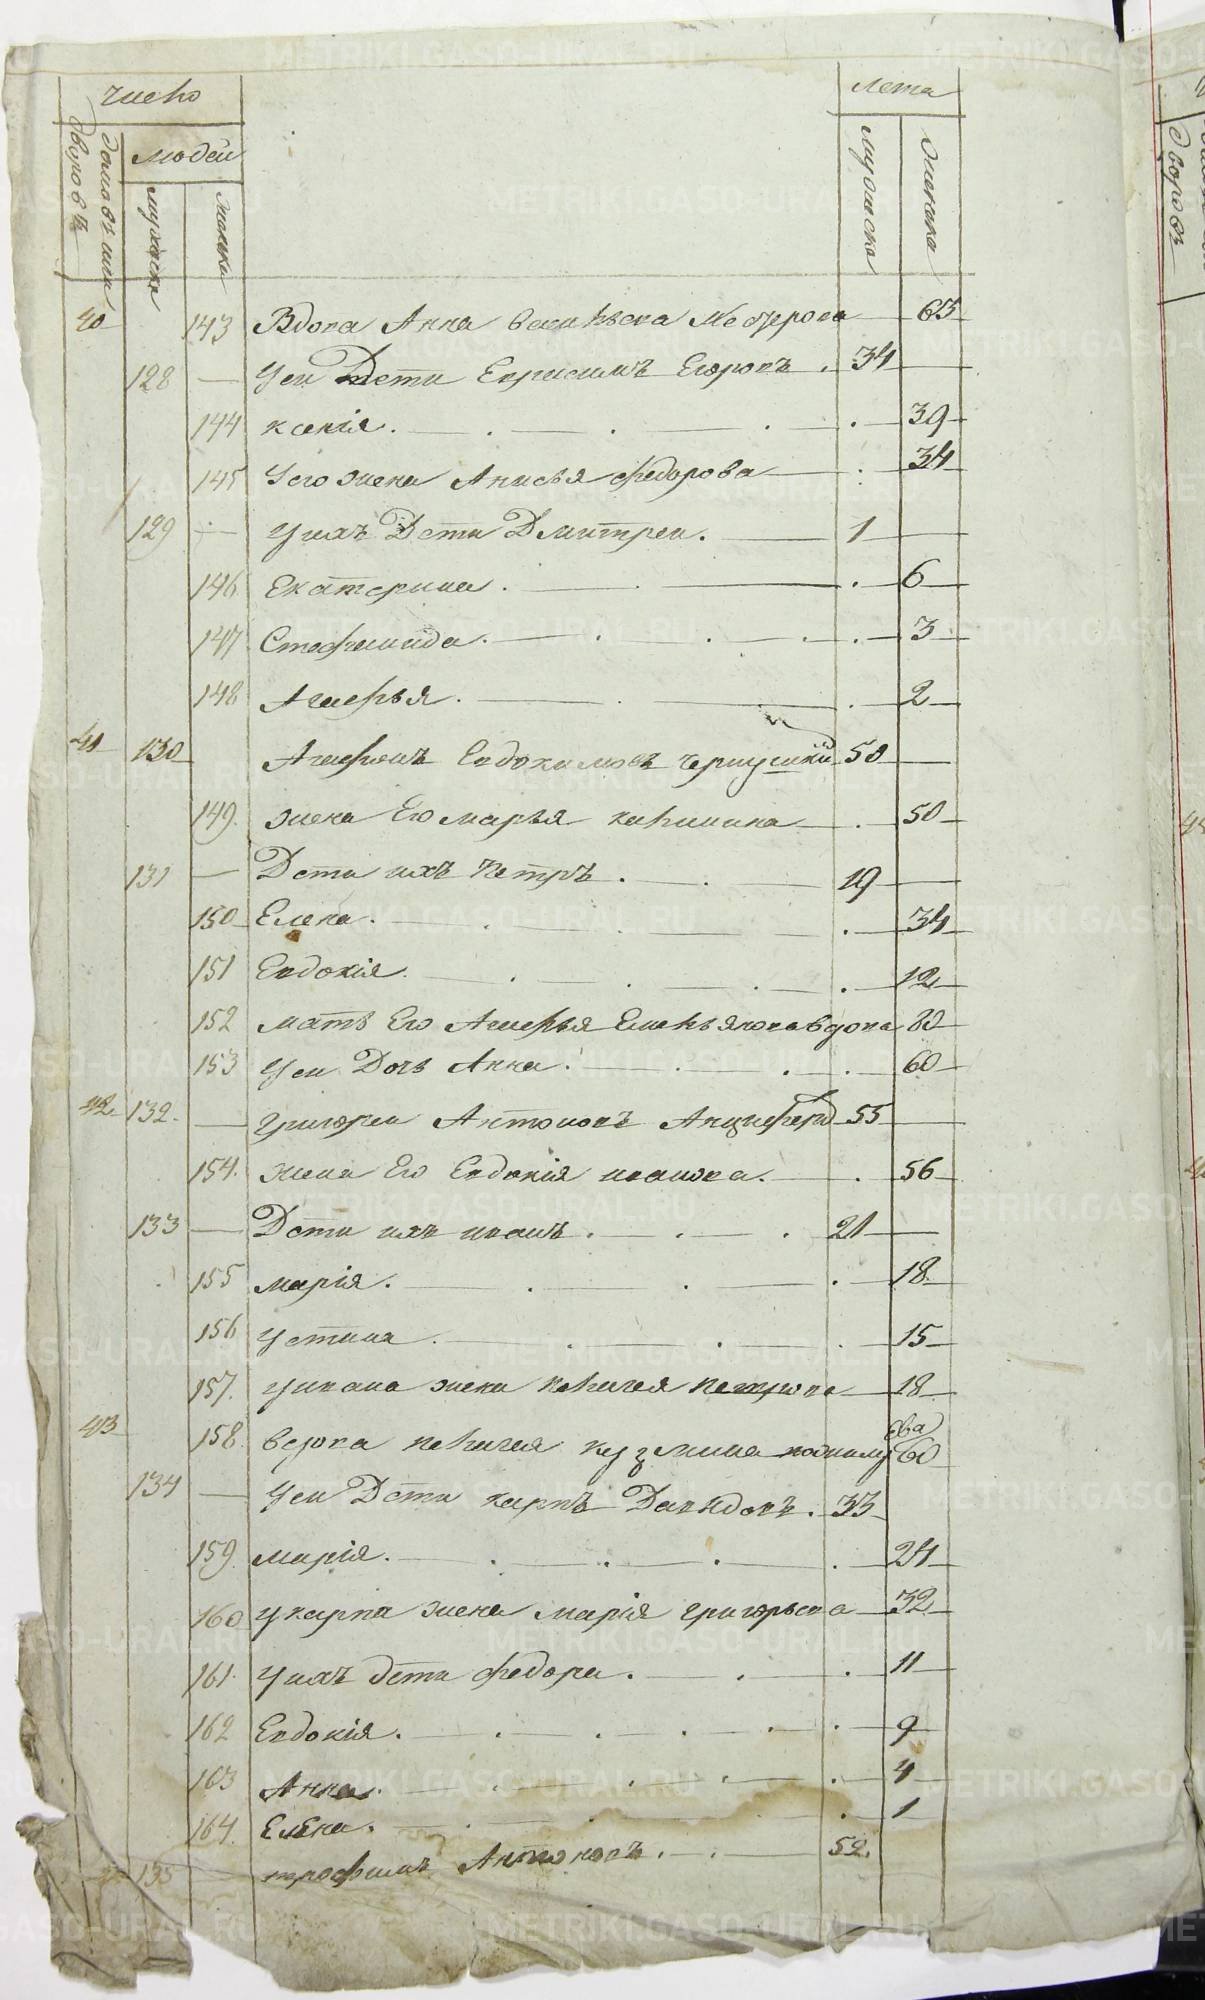 число
лета
людей
мужска
женска
мужска
женска
дворовъ
40 143 Вдова Анна Васильева 63
128 — Уеи Дети Еврисимъ Егоровъ . 34 —
144 ксенія . — . 39
145 Уего жена Анисья Федорова — 34
129 — Уихъ Дети Дмитреи . — 1 —
146 Екатерина . — . 6
147 Стефанида . — . 3
148 Агафья . — . 2
41 130 Агафонъ Евдокимовъ 50 —
149 жена Его марья — . 50
131 — Дети ихъ Петръ . — 19 —
150 Елена . — . 34
151 Евдокія . — . 12
152 мать Его Агафья вдова 80
153 Уеи Дочь Анна . — . 60
42 132 — Григореи Антоновъ Анциферо 55 —
154 жена Его Евдокія иванова . — . 56
133 — Дети ихъ иванъ . — . 21 —
155 марія . — . 18
156 Устина . — . 15
157 Уивана жена пелагея петрова — 18
43 158 вдова пелагея кузмина 60
134 — Уеи Дети карпъ Давидовъ . 33
159 марія . — . 24
160 укарпа жена марія григорьева — 32
161 Уихъ дети федора . — . 11
162 Евдокія . — . 9
163 Анна . — . 4
164 Елена . — . 1
135 — трофимъ Антоновъ . — 52
METRIKI.GASO-URAL.RU